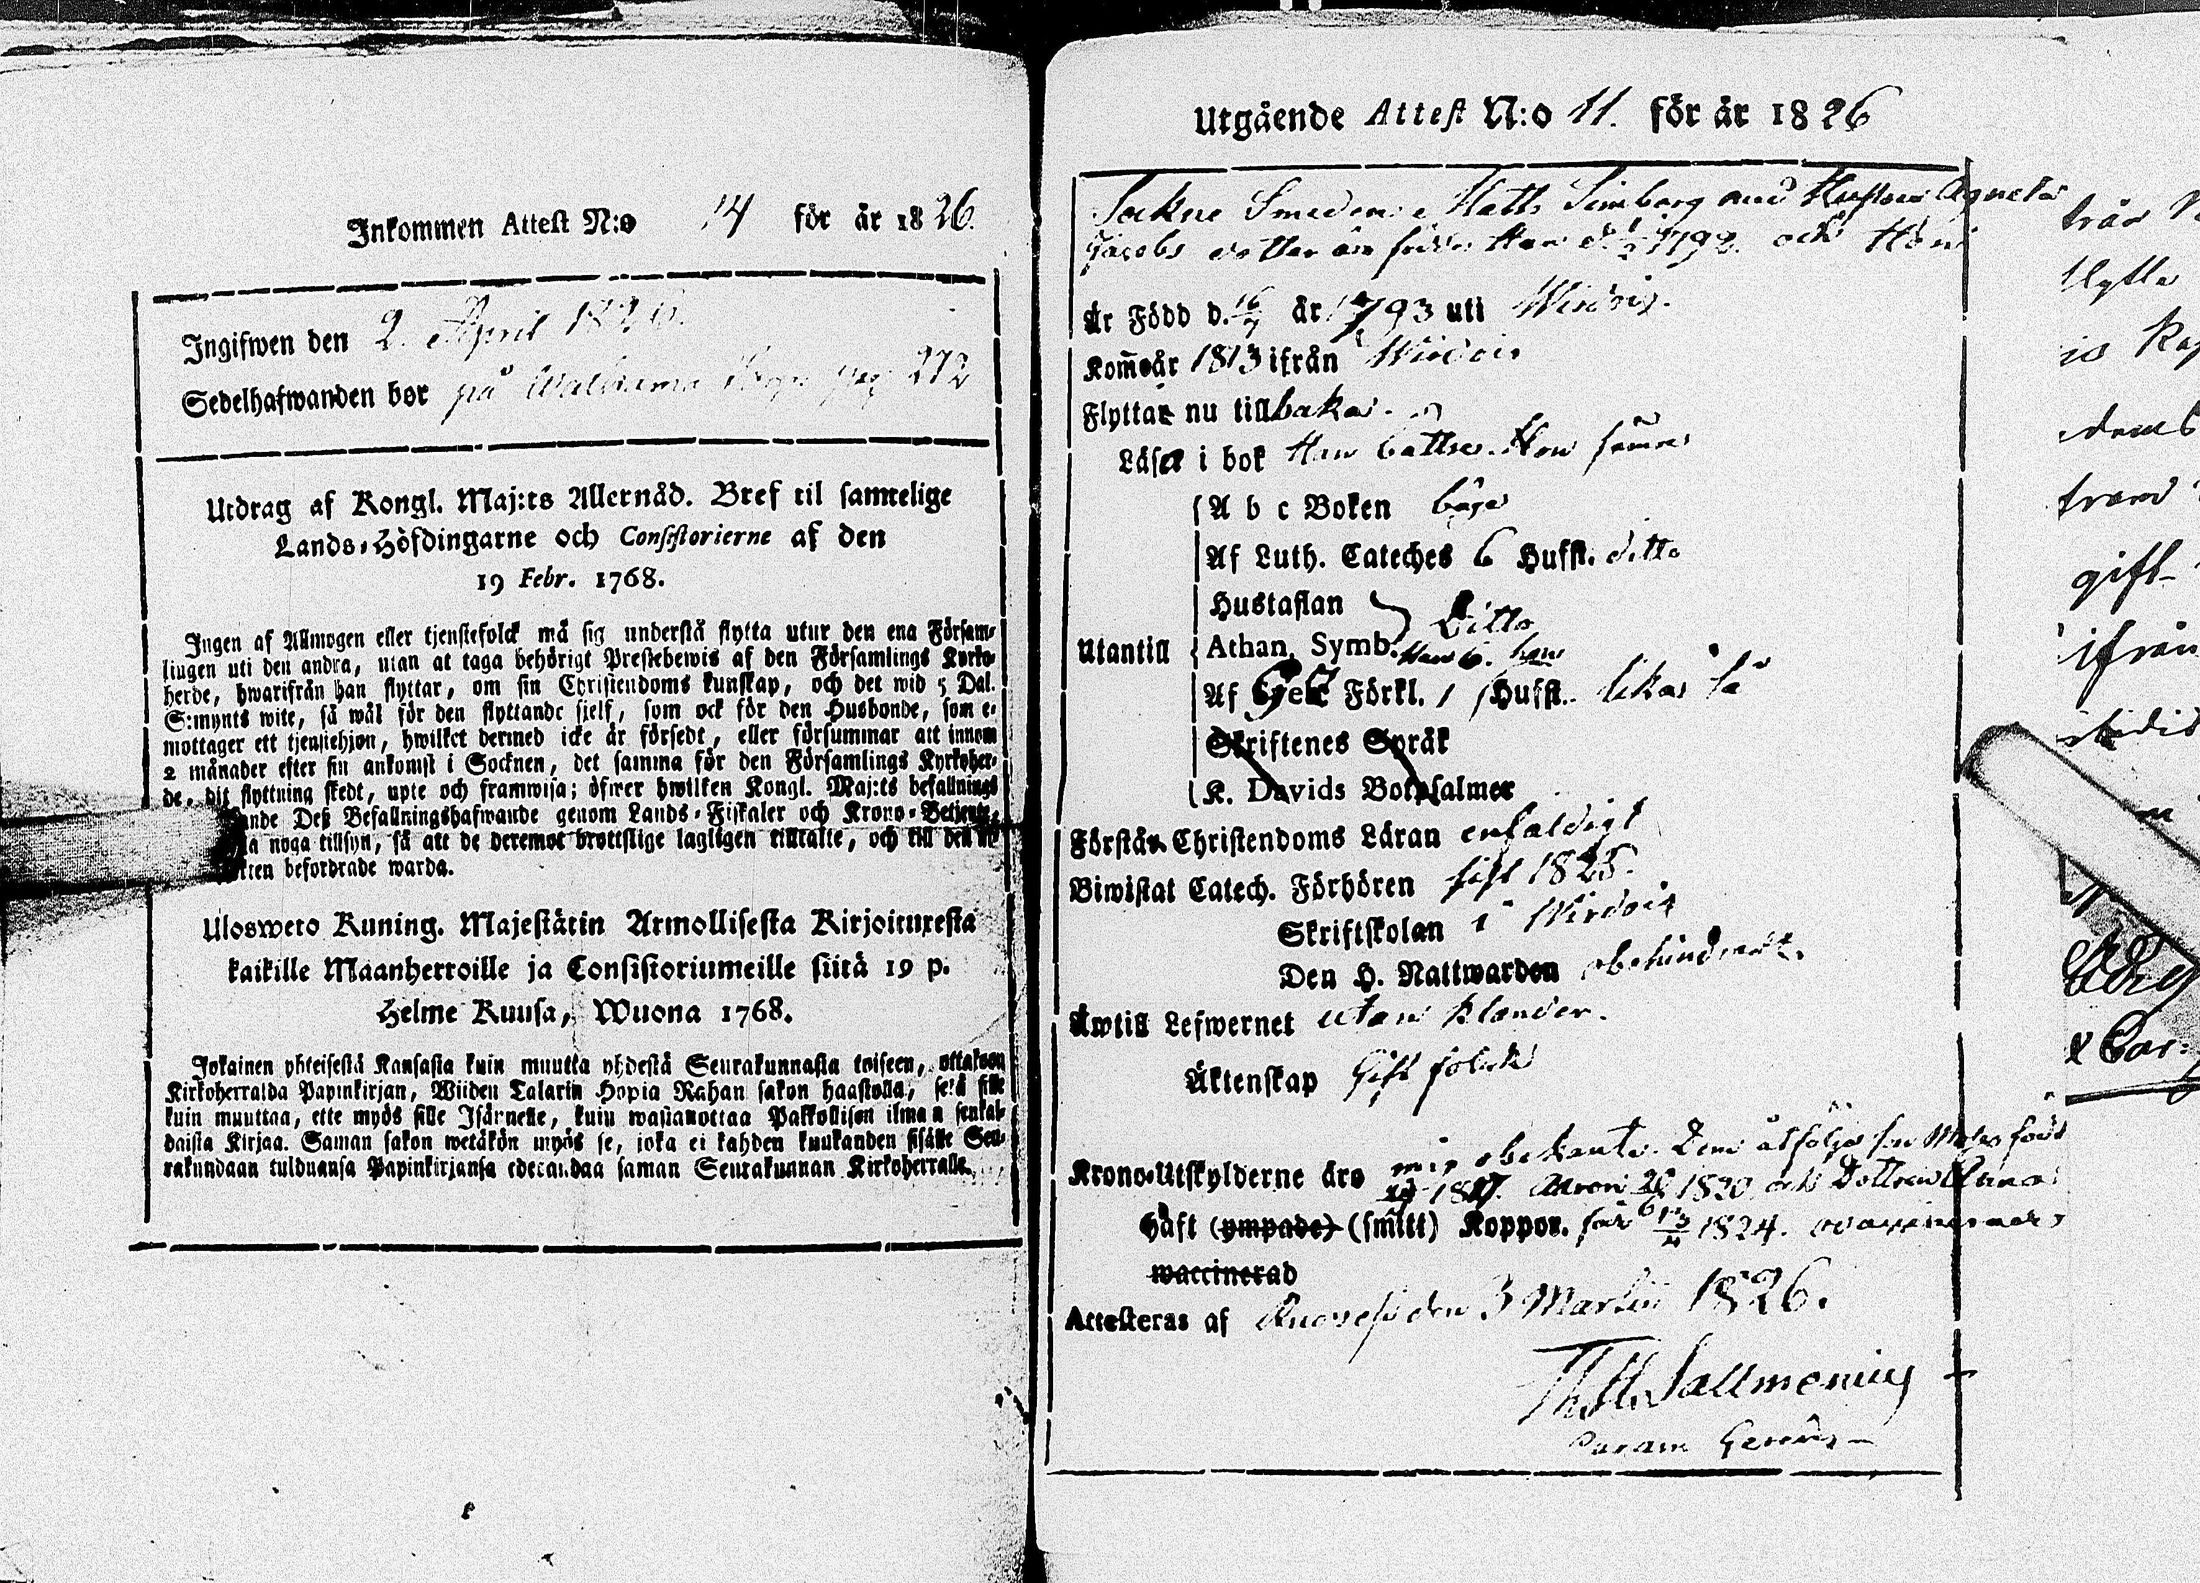 Inkommen Attest N:o 14 för år 1826.
Ingifwen den 2. April 1826.
Sedelhafwanden bor på pag 272
Utdrag af Kongl. Maj:ts Allernåd. Bref til samtelige
Lands-Höfdingarne och Consistorierne af den
19 Febr. 1768.
Ingen af Allmogen eller tjenstefolck må sig understå flytta utur den ena Försam-
lingen uti den andra, utan at taga behörigt Prestebewis af den Församlings Kyrko-
herde, hwarifrån han flyttar, om sin Christendoms kunskap, och det wid 5 Dal.
S:mynts wite, så wäl för den flyttande sjelf, som ock för den Husbonde, som e-
mottager ett tjenstehjon, hwilket dermed icke är försedt, eller försummar att innom
2 månader efter sin ankomst i Socknen, det samma för den Församlings Kyrkoher-
de, dit flyttning skedt, upte och framwisa; öfwer hwilken Kongl. Maj:ts befallnings
ande Deß Befallningshafwande genom Lands-Fiskaler och Krono-Betjente,
a noga tillsyn, så att de deremot brottslige lagligen tilltalte, och till den
ten befordrade warda.
Ulosweto Kuning. Majestätin Armollisesta Kirjoituxesta
kaikille Maanherroille ja Consistoriumeille siitä 19 p.
Helme Kuusa, Wuona 1768.
Jokainen yhteisestä Kansasta kuin muutta yhdestä Seurakunnasta toiseen, ottakoon
Kirkoherralda Papinkirjan, Wiiden Talarin Hopia Rahan sakon haastolla, sekä sille
kuin muuttaa, ette myös sille Isännelle, kuin wastanottaa Palkollisen ilman senkal-
daista Kirjaa. Saman sakon wetäkön myös se, joka ei kahden kuukauden sisälle Seu-
rakundaan tulduansa Papinkirjansa edesandaa saman Seurakunnan Kirkoherralle.
Utgående Attest N:o 11. för år 1826
Sockne Smeden Matts Simberg med Hustrun Agneta
Jacobs dotter äro födde Han d. 1/2 1792. och Hon
Är Född d. 16/7 år 1793 uti Wirdois.
Kom̃o år 1813 ifrån Wirdois
Flytta nu tillbaka.
Läsa i bok Han bättre. Hon sämre
A b c Boken båge
Af Luth. Cateches 6 Hufst. ditto
Hustaflan
Utantill Athan. Symb. Ditto
Han 6. hon
Af Förkl. 1 Hufst. lika så
Skriftenes Språk
K. Davids Botpsalmer
Förstå Christendoms Läran enfaldigt
Biwistat Catech. Förhören sist 1825.
Skriftskolan i Wirdois
Den H. Nattwarden obehindradt.
Äwtill Lefwernet utan klander.
Äktenskap Gift folck
Krono-Utskylderne äro mig obekante. Dem åtfölja son född
1817. Aaron 20/6 1820 och Dottren Anna
haft (ympade) (smitt) Koppor. född 13/4 1824.
waccinerad
Attesteras af Ruovesi den 3 Martii 1826.
Th. H. Sallmenius
gift
ifrån